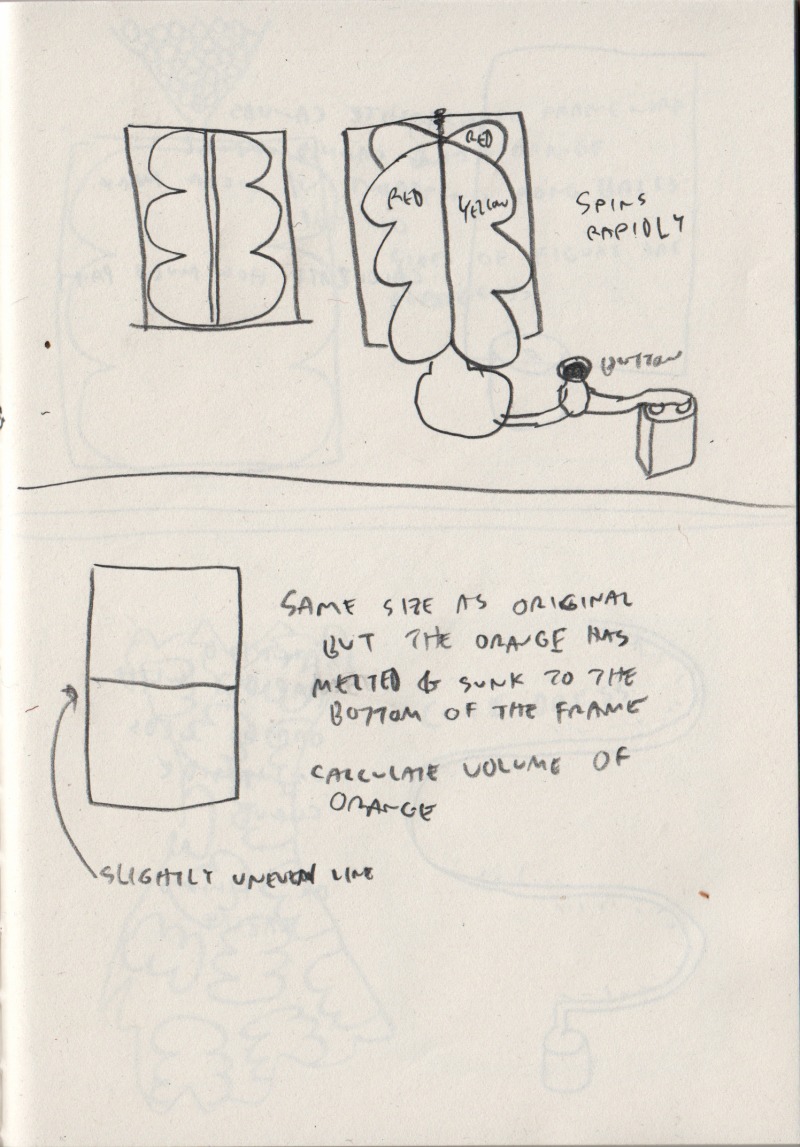 RED
RED
YELLOW
SPINS
RAPIDLY
BUTTON
SAME SIZE AS ORIGINAL
BUT THE ORANGE HAS
MELTED & SUNK TO THE
BOTTOM OF THE FRAME
CALCULATE VOLUME OF
ORANGE
SLIGHTLY UNEVEN LINE